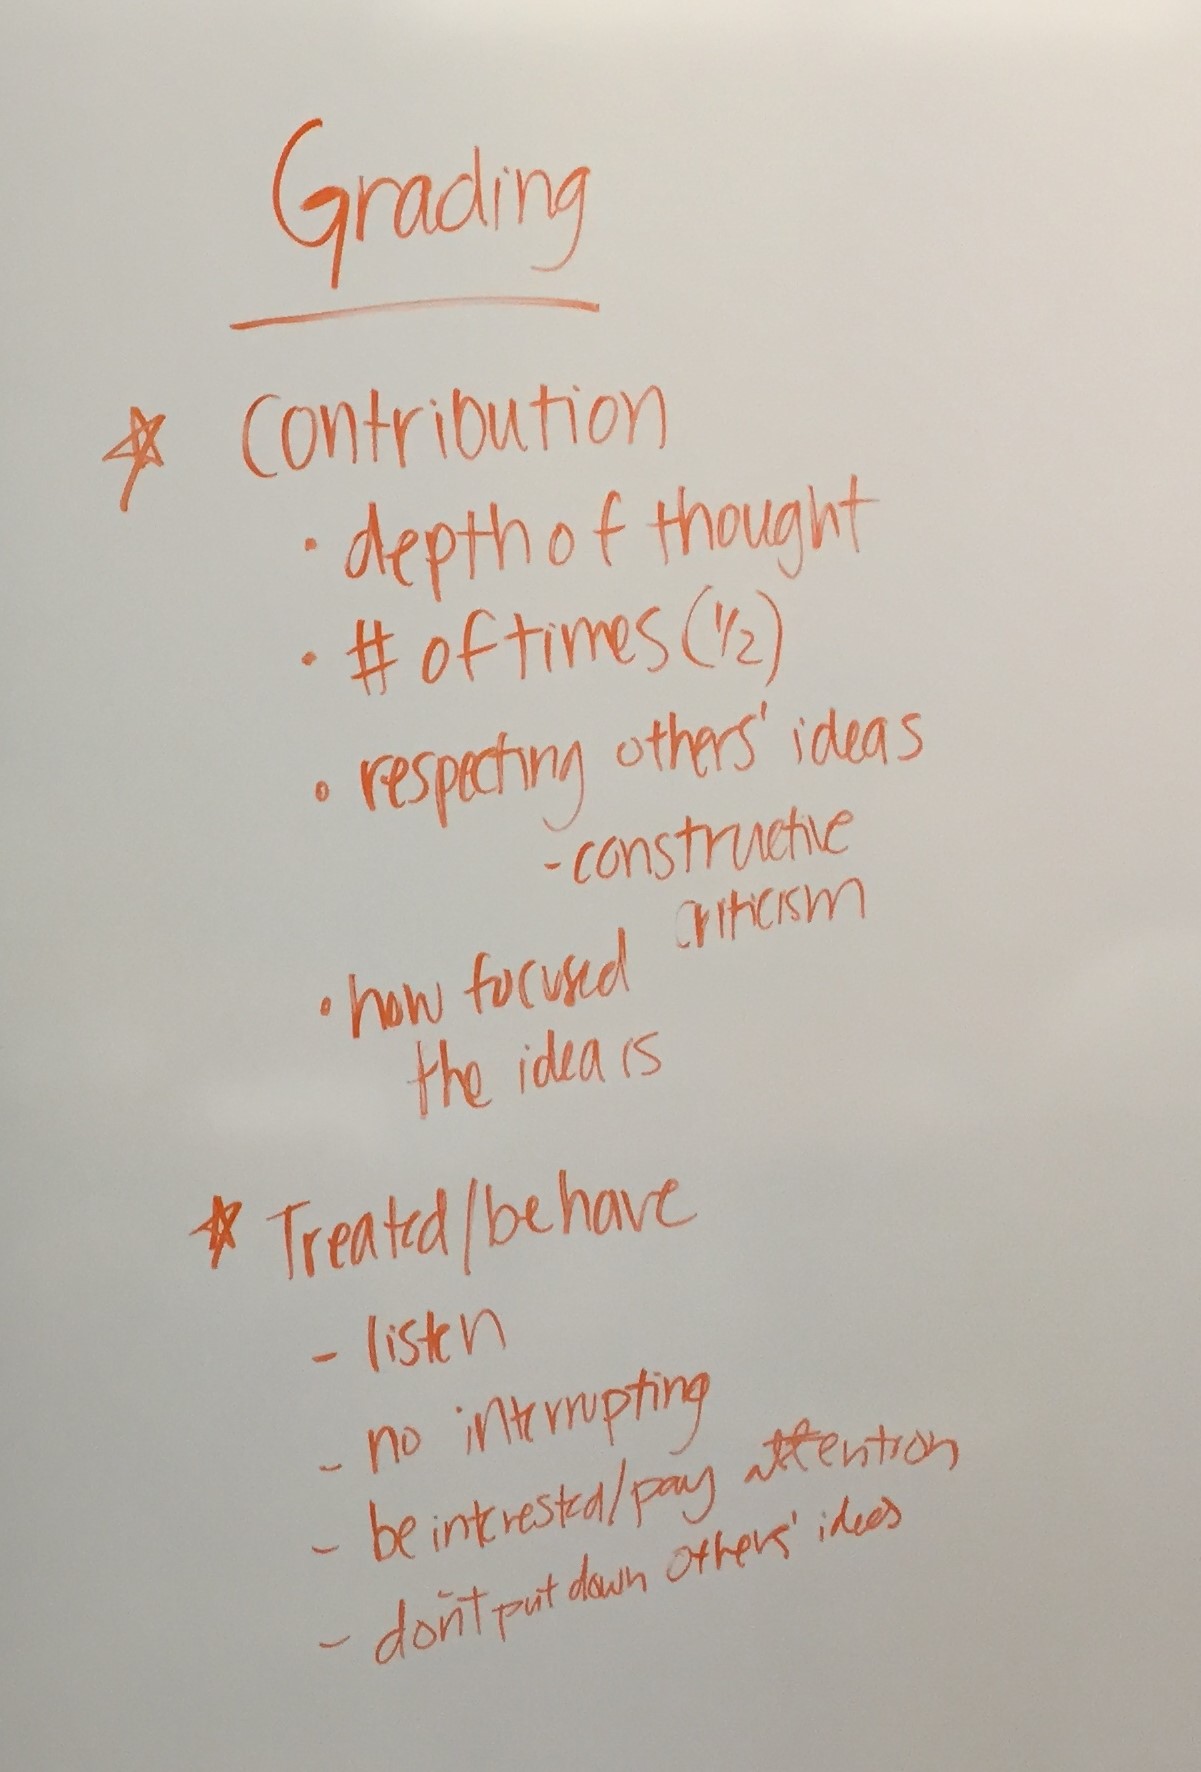 Grading
☆ Contribution
• depth of thought
• # of times (1/2)
• respecting others' ideas
- constructive
criticism
• how focused
the idea is
☆ Treated/behave
- listen
- no interrupting
- be interested/pay attention
- don't put down others' ideas